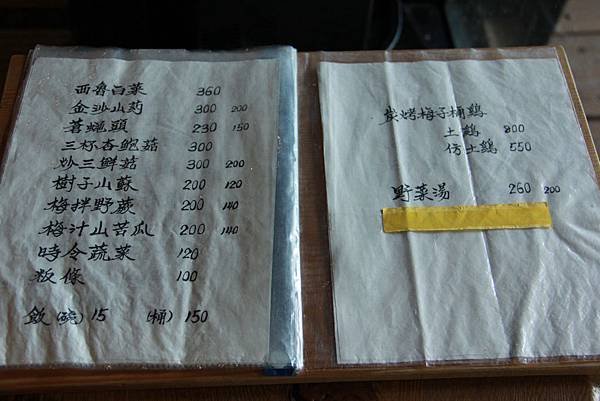 西魯白菜 360
金沙山药 300 200
蒼蝇頭 230 150
三杯杏鮑菇 300
炒三鮮菇 300 200
樹子山蘇 200 120
梅拌野蕨 200 140
梅汁山苦瓜 200 140
時令蔬菜 120
粄條 100
飯(碗)15 (桶)150
炭烤梅子桶鷄
土鷄 800
仿土鷄 550
野菜湯 260 200